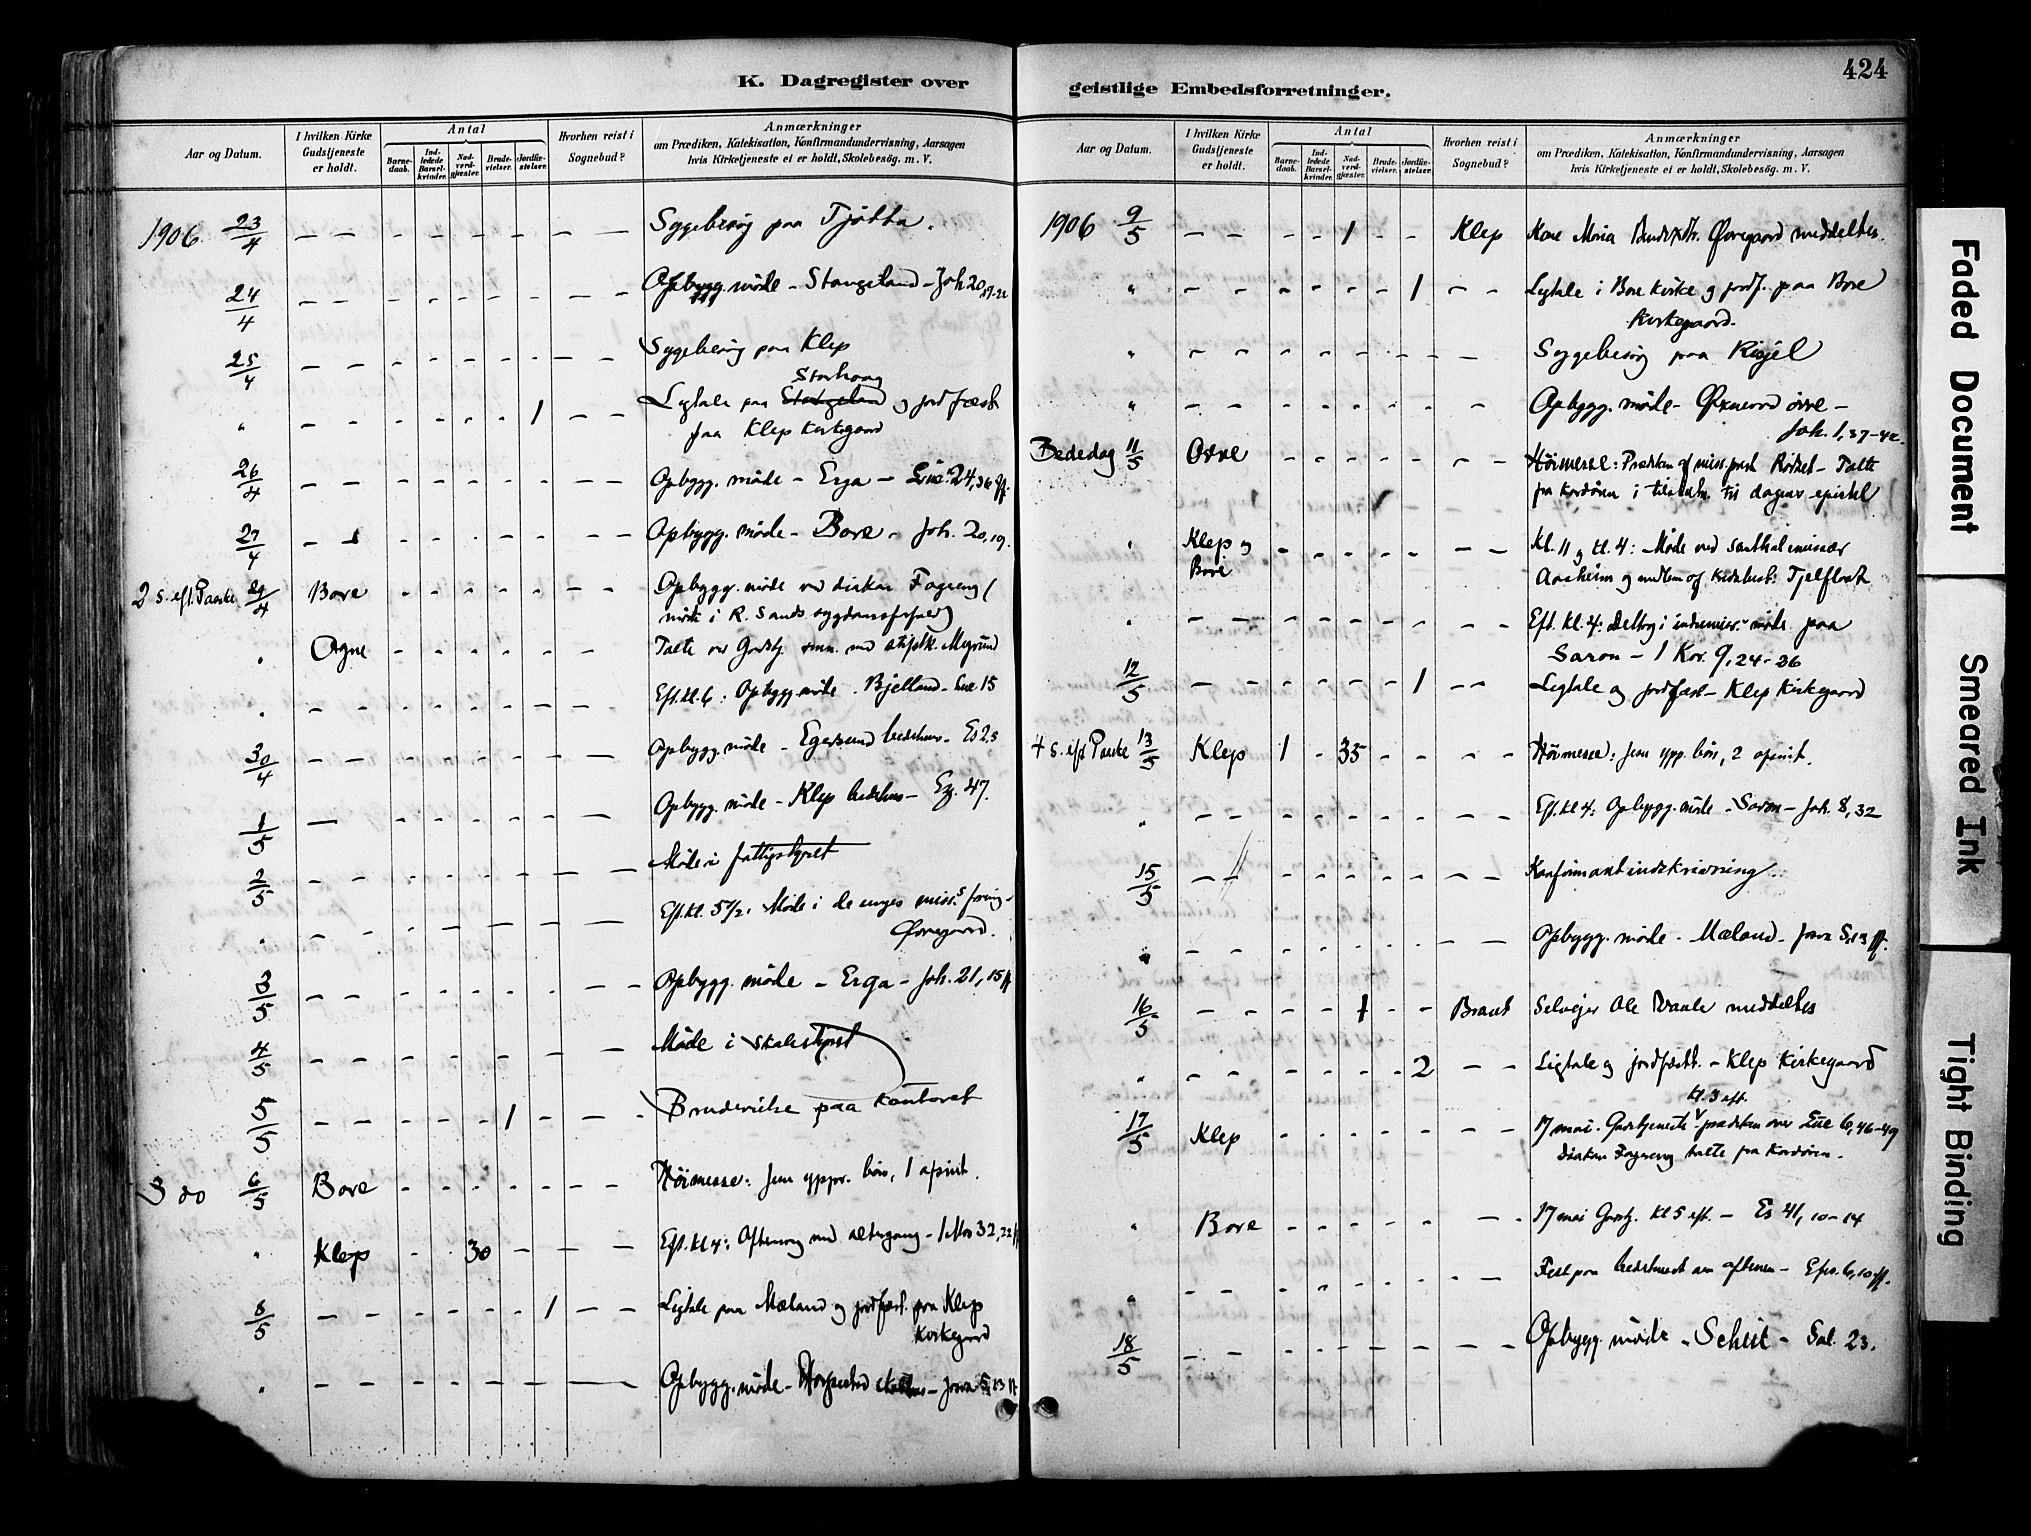 424
K. Dagregister over
geistlige Embedsforretninger.
Aar og Datum.
I hvilken Kirke Gudstjeneste er holdt.
Antal
Barnedaab.
Indledede Barselkvinder.
Nadverdgjæster.
Brudevielser.
Jordfæstelser.
Hvorhen reist i Sognebud?
Anmærkninger
om Prædiken, Katekisation, Konfirmandundervisning, Aarsagen
hvis Kirketjeneste ei er holdt, Skolebesög. m. V.
1906 23/4 - - Sygebesøg paa Tjøtta.
24/4 - - Opbygg. møde - Stangeland - Joh 20, 19-
25/4 - - Sygebesøg paa Klep
Storhaug
" - - 1 Ligtale paa Stangeland og jordfæst
paa Klep Kirkegaard
26/4 - - Opbygg. møde - Erga - Luc. 24, 36 ff.
27/4 - - Opbygg. møde - Bore - Joh. 20, 19.
2 s. eft. Paaske 29/4 Bore Opbygg. møde ved diakon Fagereng (
møde i R. Sands
" Ogne Talte ved Gudstj. med stiftsk.
" Eft. kl. 6: Opbygg. møde. Bjelland - Luc 15
30/4 - - Opbygg. møde - Egersund bedehus - Es 25
1/5 - Opbygg. møde - Klep bedehus - Ez. 47.
2/5 - - Møde i fattigstyret
" - - Eft. kl. 5 1/2. Møde i de unges miss.s foring -
Øvregaard.
3/5 - - Opbygg. møde - Erga - Joh. 21, 15 ff
4/5 - - Møde i skolestyret
5/5 - - 1 Brudevielse paa kontoret
3 do 6/5 Bore Høimesse: Jem. yppr. bøn, 1 afsint.
" Klep 30 Eft. kl 4: Aftensang med altergang - 1 Mos 32, 22 ff
8/5 - - 1 Ligtale paa Mæland og jordfæst. paa Klep
Kirkegaard
" - - Opbygg. møde - - Josva 5, 13 ff
Aar og Datum.
I hvilken Kirke Gudstjeneste er holdt.
Antal
Barnedaab.
Indledede Barselkvinder.
Nadverdgjæster.
Brudevielser.
Jordfæstelser.
Hvorhen reist i Sognebud?
Anmærkninger
om Prædiken, Katekisation, Konfirmandundervisning, Aarsagen
hvis Kirketjeneste ei er holdt, Skolebesög. m. V.
1906 9/5 - - 1 Klep Kone Maria Øvregaard meddeltes.
" - - 1 Ligtale i Bore Kirke og jordf. paa Bore
Kirkegaard.
" - - Sygebesøg paa
" - - Opbygg. møde - Øxnevad øvre -
Joh. 1, 37-42.
Bededag 11/5 Orre Høimesse: Prædiken af miss.præst - Talte
fra Kordøren i til dagens epistel
" Klep og
Bore Kl. 11 og kl. 4: Møde ved santhalmissær
Aasheim og medlem af Tjelflaat
" Eft. kl. 4: Deltog i indremiss. møde paa
Saron - 1 Kor. 9, 24-26
12/5 - - 1 Ligtale og jordfæst - Klep Kirkegaard
4 s. eft Paaske 13/5 Klep 1 - 35 Høimesse: Jem ypp. bøn, 2 afsint.
" - - Eft. kl 4: Opbygg. møde - Saron - Joh. 8, 32
15/5 - - Konfirmantindskrivning.
" - - Opbygg. møde - Mæland - Josva 5, 13 ff.
16/5 - - 1 Braut Selveier Ole Vaale meddeltes
" - - 2 Ligtale og jordfæst. - Klep Kirkegaard
kl. 3 eft.
17/5 Klep 17 mai - Gudstjeneste prædiken over Luc 6, 46-49
Diakon Fagereng talte fra Kordøren.
" Bore 17 mai Gudstj. kl 5 eft. - Es 41, 10-14
" - - Fest paa bedehuset om aftenen - Efes. 6, 10 ff.
18/5 - - Opbygg. møde - - Sal. 23.
Faded Document
Smeared Ink
Tight Binding